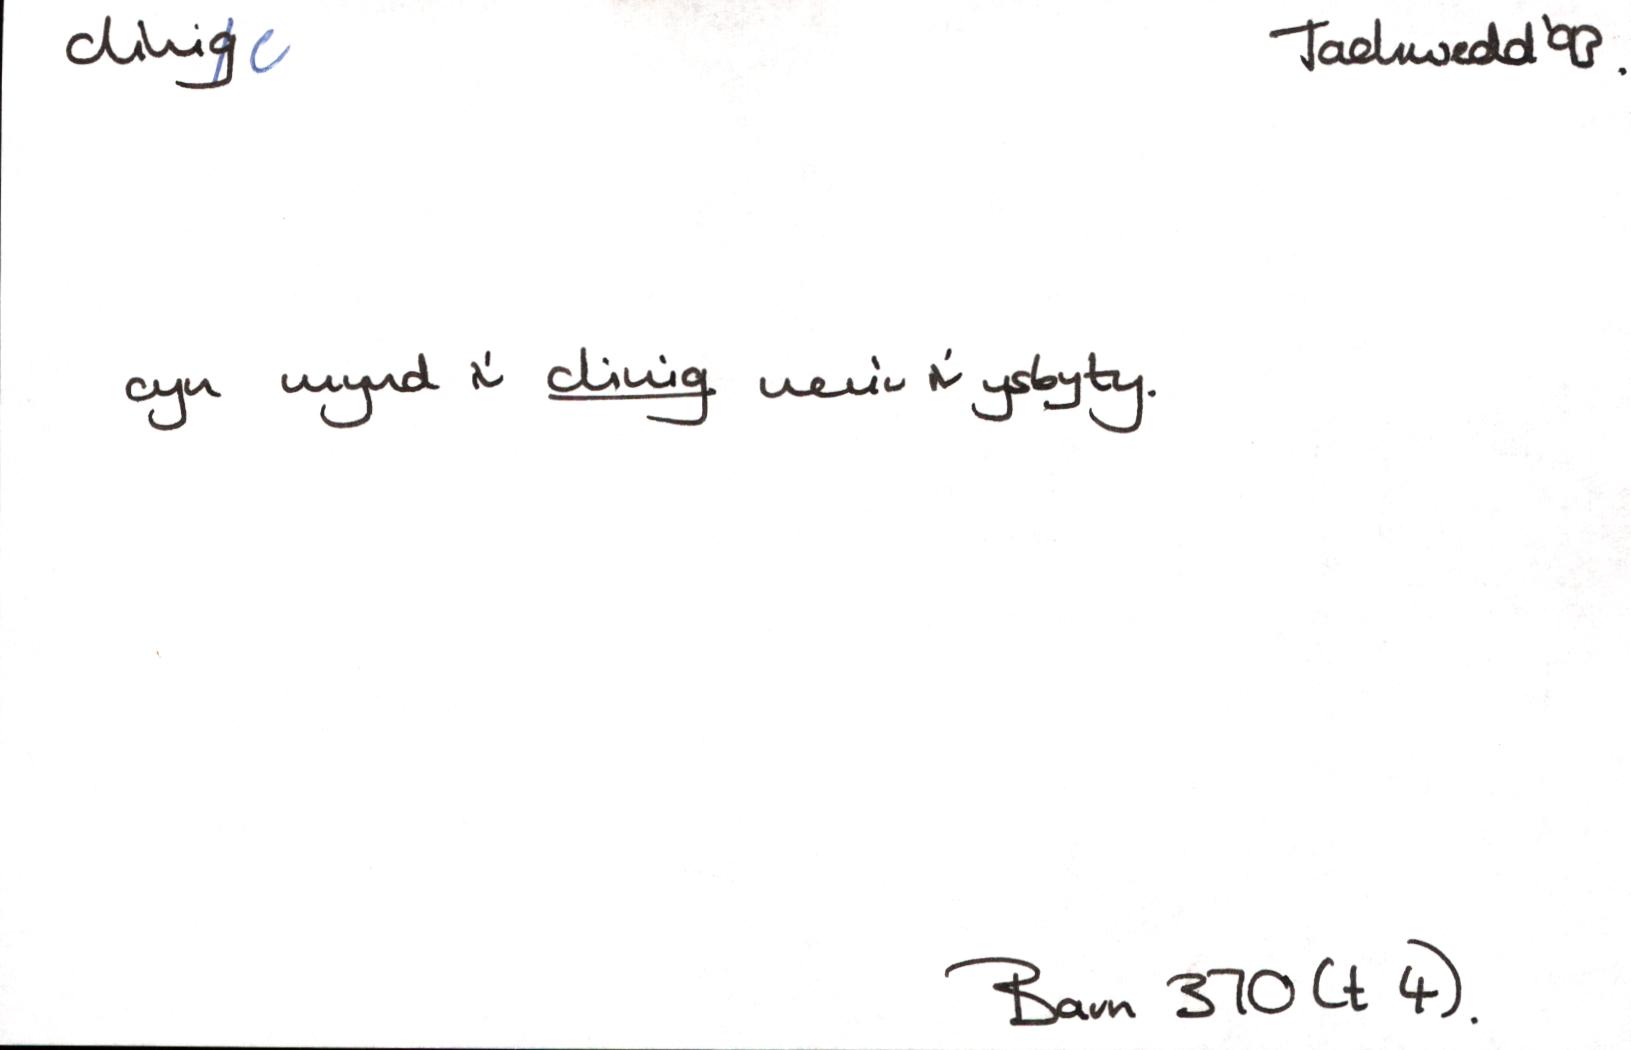 clinig/c Tachwedd '93.
cyn mynd i'r clinig i'r ysbyty.
Barn 370 (t 4).